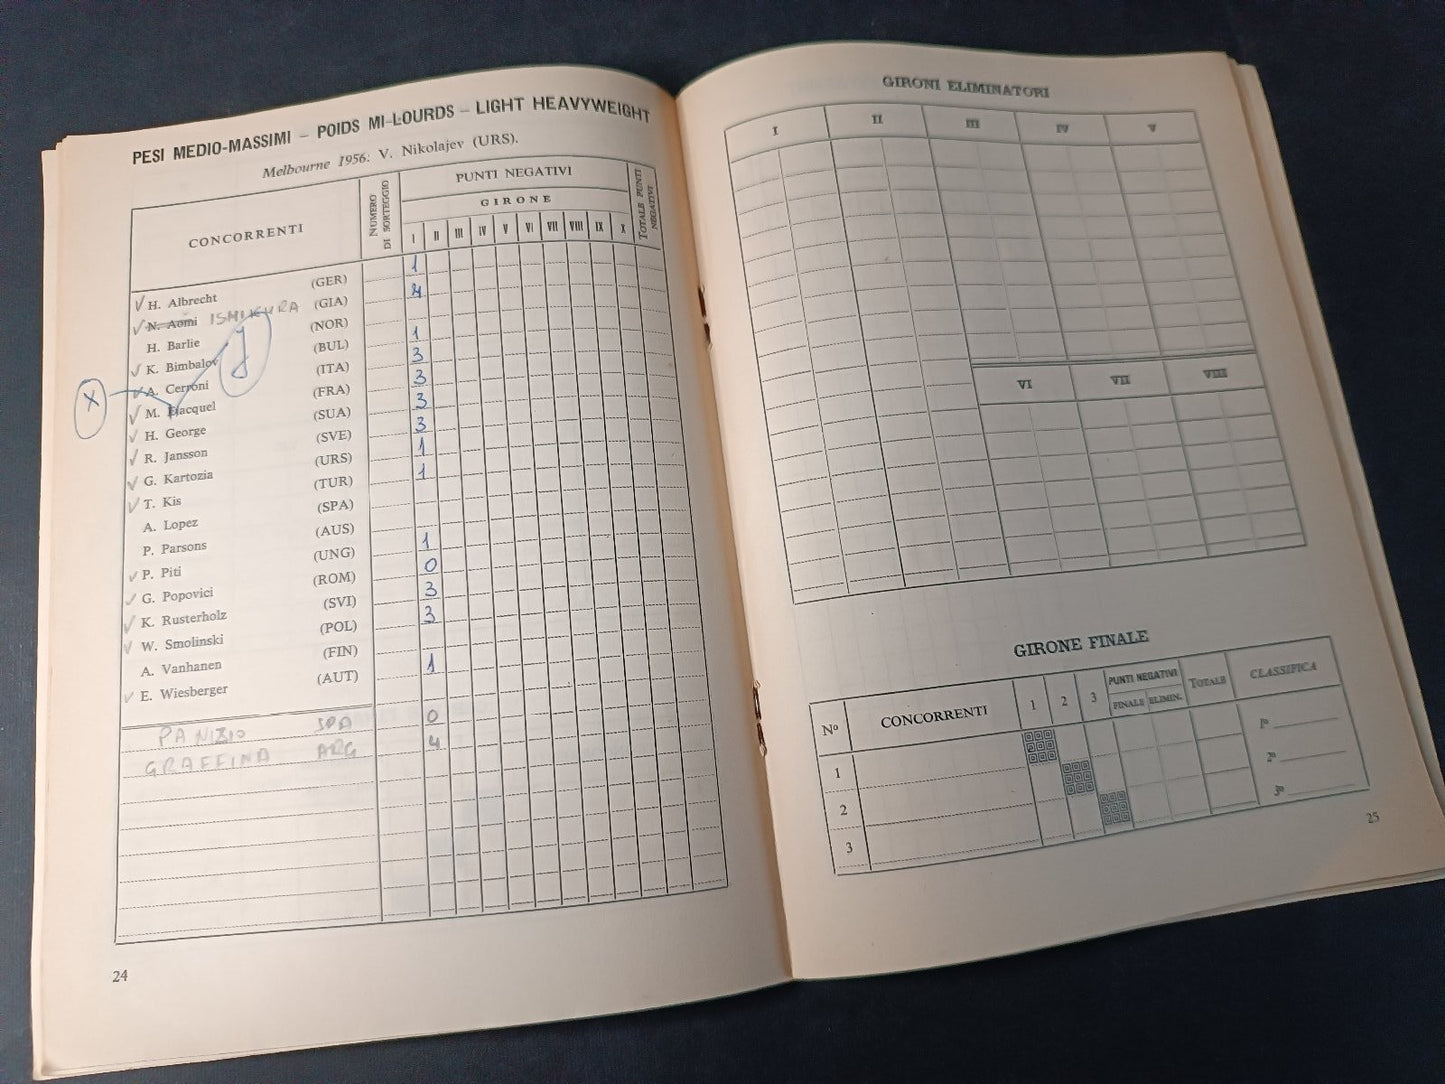 PESI MEDIO-MASSIMI – POIDS MI-LOURDS – LIGHT HEAVYWEIGHT
Melbourne 1956: V. Nikolajev (URS).
CONCORRENTI
NUMERO DI SORTEGGIO
PUNTI NEGATIVI
TOTALE PUNTI NEGATIVI
GIRONE
I II III IV V VI VII VIII IX X
✓ H. Albrecht (GER) 1
✓ N. Aomi ISHIKURA (GIA) 4
H. Barlie (NOR)
✓ K. Bimbalov (BUL) 1
X ✓ A. Cerroni (ITA) 3
✓ M. Jacquel (FRA) 3
✓ H. George (SUA) 3
✓ R. Jansson (SVE) 3
✓ G. Kartozia (URS) 1
✓ T. Kis (TUR) 1
A. Lopez (SPA)
P. Parsons (AUS)
✓ P. Piti (UNG) 1
✓ G. Popovici (ROM) 0
✓ K. Rusterholz (SVI) 3
✓ W. Smolinski (POL) 3
A. Vanhanen (FIN)
✓ E. Wiesberger (AUT) 1
0
GRAFFINA ARG 4
24
GIRONI ELIMINATORI
I II III IV V
VI VII VIII
GIRONE FINALE
Nº CONCORRENTI 1 2 3 PUNTI NEGATIVI TOTALE CLASSIFICA
FINALE ELIMIN.
1
2
3
1º
2º
3º
25